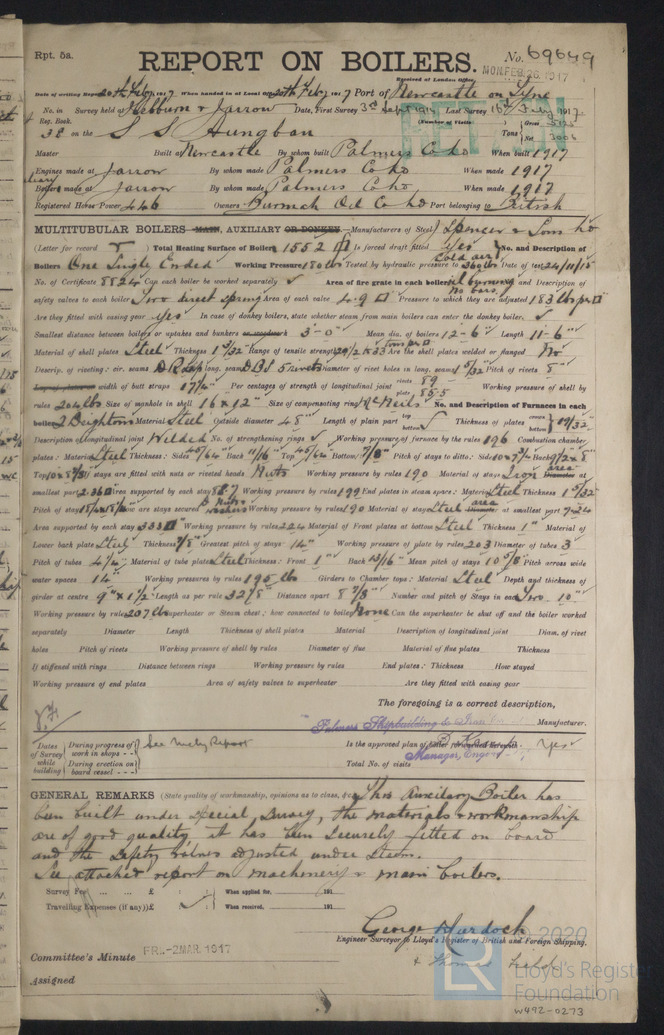 Rpt. 5a.
REPORT ON BOILERS.
No. 69649
Received at London Office
MON. FEB. 26. 1917
Date of writing Report 20th Feby 1917 When handed in at Local Office 20th Feby 1917 Port of Newcastle on Tyne
No. in Reg. Book. Survey held at Hebburn & Jarrow Date, First Survey 3rd Sept 1914 Last Survey 16th Feby 1917
(Number of Visits)
38 on the S S Hungban Tons { Gross Net 3006
Master Built at Newcastle By whom built Palmers Co Ld When built 1917
Engines made at Jarrow By whom made Palmers Co Ld When made 1917
Boilers made at Jarrow By whom made Palmers Co Ld When made 1917
Registered Horse Power 446 Owners Burmah Oil Co Ld Port belonging to British
MULTITUBULAR BOILERS MAIN, AUXILIARY OR DONKEY.—Manufacturers of Steel J Spencer & Sons Ld
(Letter for record r) Total Heating Surface of Boilers 1552 □ Is forced draft fitted Yes cold air No. and Description of
Boilers One Single Ended Working Pressure 180 lbs Tested by hydraulic pressure to 360 lbs Date of test 24/11/15
No. of Certificate 8824 Can each boiler be worked separately ✓ Area of fire grate in each boiler oil burning no bars No. and Description of
safety valves to each boiler Two direct spring Area of each valve 4.9 □ Pressure to which they are adjusted 183 lbs per □
Are they fitted with easing gear Yes In case of donkey boilers, state whether steam from main boilers can enter the donkey boiler. ✓
Smallest distance between boilers or uptakes and bunkers or woodwork 3'-0" Mean dia. of boilers 12-6" Length 11-6"
Material of shell plates Steel Thickness 1 3/32" Range of tensile strength 29 1/2 & 33 tons per □ Are the shell plates welded or flanged No
Descrip. of riveting: cir. seams D R Lap long. seams D B S 5 rivets Diameter of rivet holes in long. seams 1 5/32" Pitch of rivets 8"
width of butt straps 17 1/4" Per centages of strength of longitudinal joint rivets 89 plate 85.5 Working pressure of shell by
rules 204 lbs Size of manhole in shell 16 x 12" Size of compensating ring McNeils No. and Description of Furnaces in each
boiler 2 Deightons Material Steel Outside diameter 48" Length of plain part top bottom Thickness of plates crown bottom 17/32"
Description of longitudinal joint Welded No. of strengthening rings ✓ Working pressure of furnace by the rules 196 Combustion chamber
plates: Material Steel Thickness: Sides 45/64" Back 11/16" Top 45/64" Bottom 7/8" Pitch of stays to ditto: Sides 10 x 7 3/4" Back 9 1/2 x 8"
Top 10 x 8 3/8" If stays are fitted with nuts or riveted heads Nuts Working pressure by rules 190 Material of stays Iron area Diameter at
smallest part 2.36 □ Area supported by each stay 83.7 Working pressure by rules 199 End plates in steam space: Material Steel Thickness 1 5/32"
Pitch of stays How are stays secured D nuts & washers Working pressure by rules 190 Material of stays Steel area Diameter at smallest part 7.24
Area supported by each stay 333 □ Working pressure by rules 224 Material of Front plates at bottom Steel Thickness 1" Material of
Lower back plate Steel Thickness 7/8" Greatest pitch of stays 14" Working pressure of plate by rules 203 Diameter of tubes 3
Pitch of tubes 4 1/4" Material of tube plates Steel Thickness: Front 1" Back 13/16" Mean pitch of stays 10 5/8" Pitch across wide
water spaces 14" Working pressures by rules 195 lbs Girders to Chamber tops: Material Steel Depth and thickness of
girder at centre 9" x 1 1/2" Length as per rule 32 7/8" Distance apart 8 3/8" Number and pitch of Stays in each Two 10"
Working pressure by rules 207 lbs Superheater or Steam chest; how connected to boiler None Can the superheater be shut off and the boiler worked
separately Diameter Length Thickness of shell plates Material Description of longitudinal joint Diam. of rivet
holes Pitch of rivets Working pressure of shell by rules Diameter of flue Material of flue plates Thickness
If stiffened with rings Distance between rings Working pressure by rules End plates: Thickness How stayed
Working pressure of end plates Area of safety valves to superheater Are they fitted with easing gear
The foregoing is a correct description,
Palmers Shipbuilding & Iron Manufacturer.
Dates of Survey while building { During progress of work in shops - - During erection on board vessel - - - } See Mchy Report
Is the approved plan of boiler forwarded herewith Yes
Manager, Engine
Total No. of visits
GENERAL REMARKS (State quality of workmanship, opinions as to class, &c. This Auxiliary Boiler has
been built under special survey, the materials & workmanship
are of good quality it has been securely fitted on board
and the safety valves adjusted under steam.
See attached report on machinery & main boilers.
Survey Fee ... ... £ : : When applied for, 191
Travelling Expenses (if any) £ : ✓ : When received, 191
George Murdoch
Engineer Surveyor to Lloyd's Register of British and Foreign Shipping.
& Thomas Field
Committee's Minute FRI.-2 MAR. 1917
Assigned
© 2020
LR
Lloyd's Register
Foundation
W492-0273